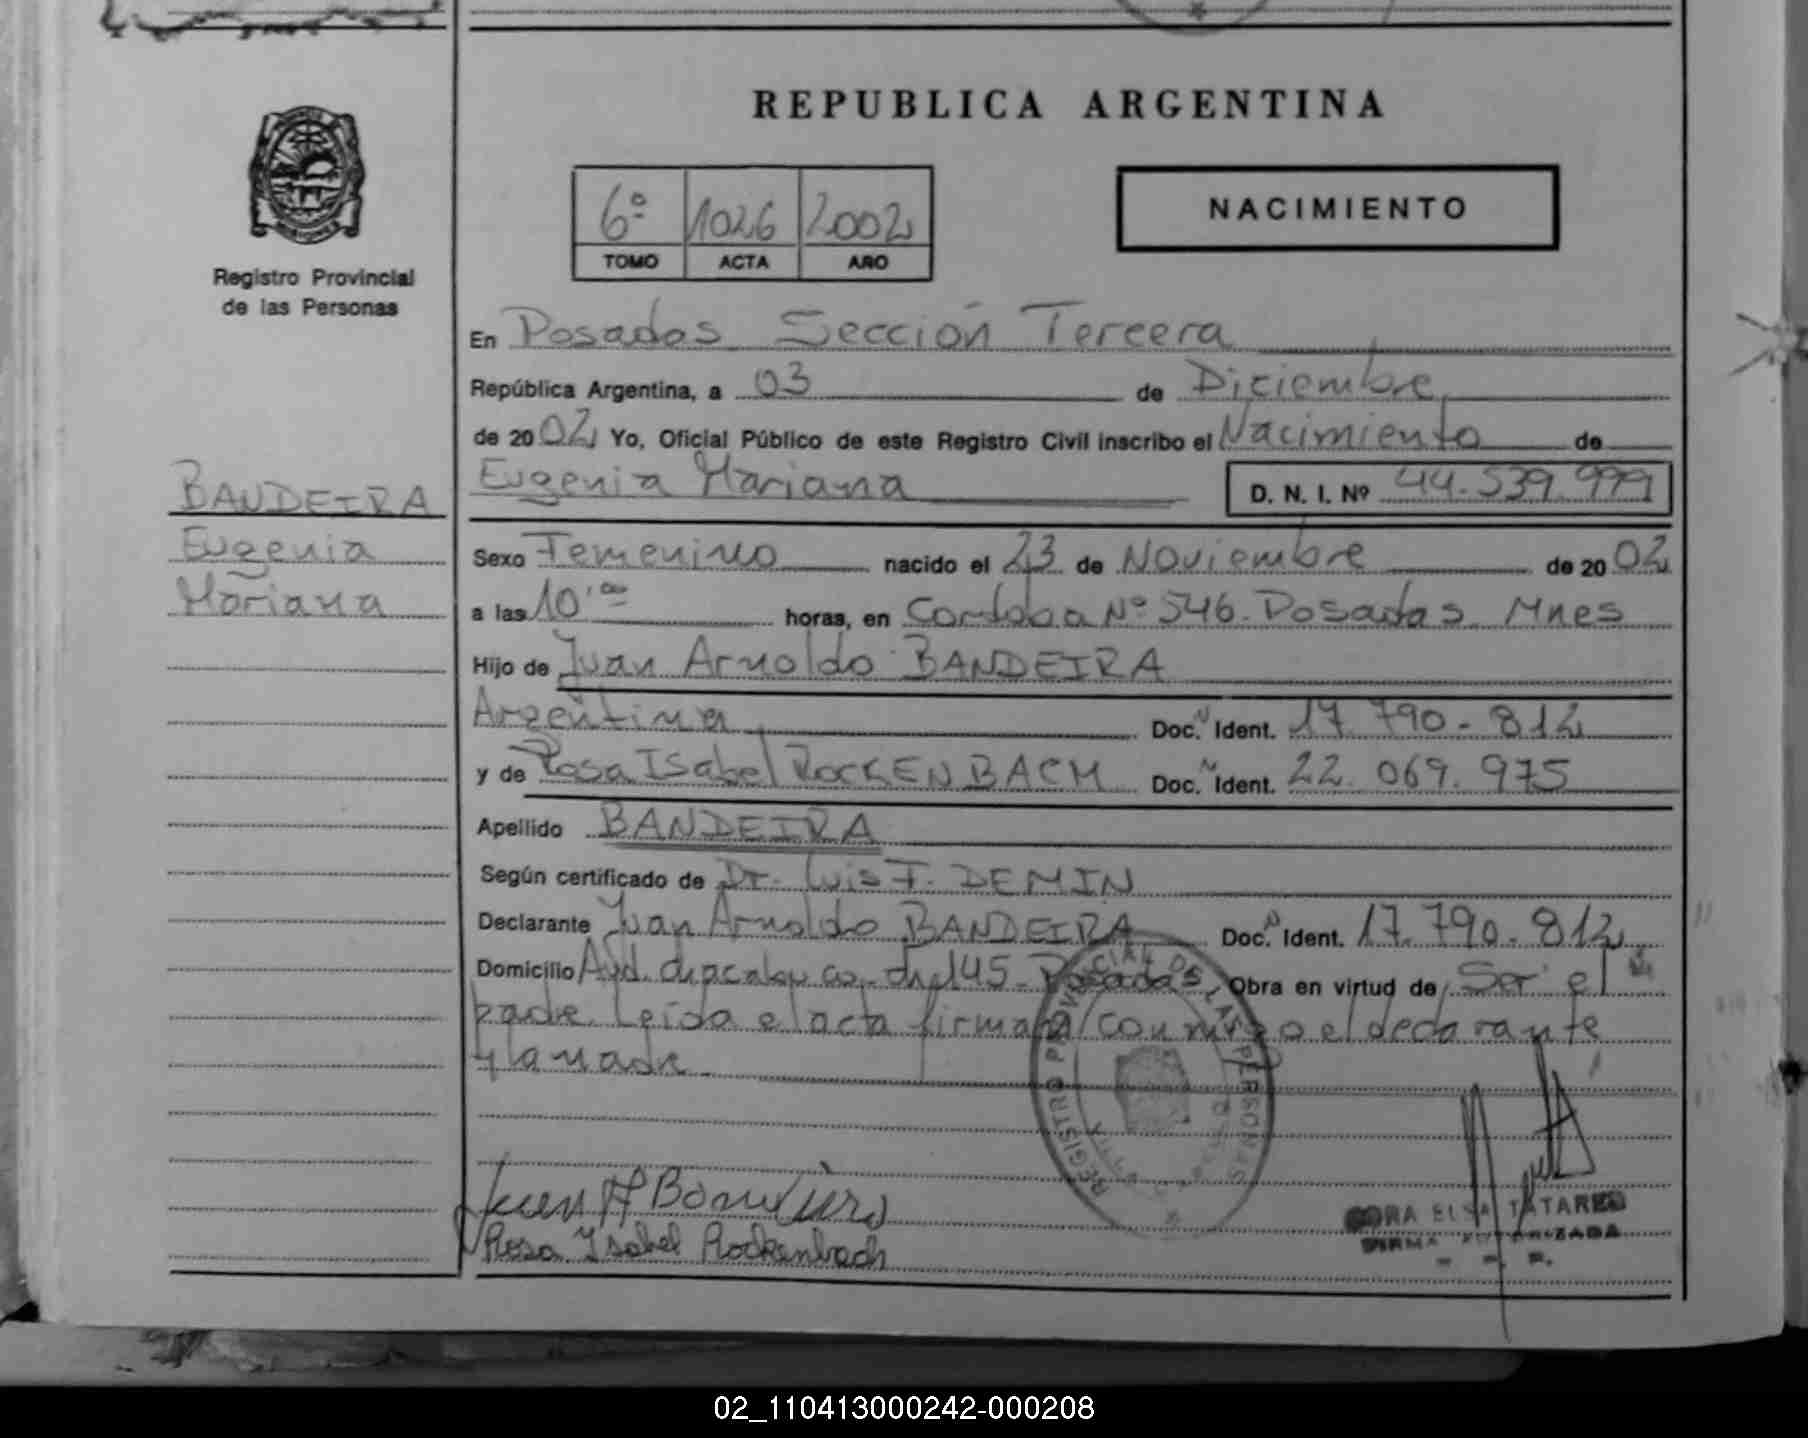 REPUBLICA ARGENTINA
Registro Provincial
de las Personas
6º 1026 2002
TOMO ACTA AÑO
NACIMIENTO
En Posadas Sección Tercera
República Argentina, a 03 de Diciembre
de 2002 Yo, Oficial Público de este Registro Civil inscribo el Nacimiento de
Eugenia Mariana D. N. I. Nº 44.539.999
BANDEIRA
Eugenia
Mariana
Sexo Femenino nacido el 23 de Noviembre de 2002
a las 10,00 horas, en Cordoba Nº 546. Posadas Mnes
Hijo de Juan Arnoldo BANDEIRA
Argentina Doc. N Ident. 17.790.812
y de Rosa Isabel ROCKENBACH Doc. N Ident. 22.069.975
Apellido BANDEIRA
Según certificado de Dr. Luis F. DEMIN
Declarante Juan Arnoldo BANDEIRA Doc. N Ident. 17.790.812
Domicilio Avd. chacabuco ch 145 Posadas Obra en virtud de Ser el
padre. Leída el acta firman conmigo el declarante
y la madre
REGISTRO PROVINCIAL DE LAS PERSONAS
Juan A Bandeira
Rosa Ysabel Rockenbach
ELSA TATAREN
FIRMA AUTORIZADA
02_110413000242-000208